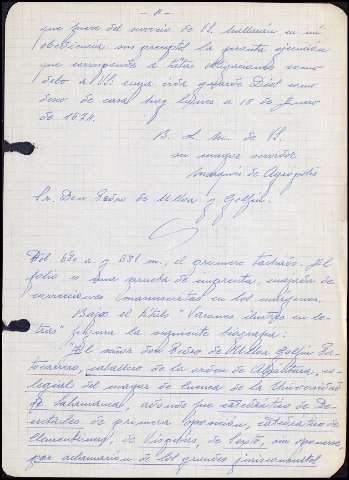 - 8 -
que fuere del servicio de VS. hallarán en mi
obediencia sin
que corresponde a tantas obligaciones como
debo a VS. cuya vida guarde Dios como
deseo de casa hoy lunes a 15 de Junio
de 1674.
B. L. M. de VS.
su mayor servidor
Marqués de Agrópoli
Sr. Don Pedro de Ulloa y Golfín.
Fol. 690 a y 691 m., el primero tachado. El
folio es una prueba de imprenta, enojosa de
correcciones manuscritas en los márgenes.
Bajo el título "Varones ilustres en le-
tras" figura la siguiente biografía:
"El señor don Pedro de Ulloa Golfín Por-
tocarrero, caballero de la orden de Alcántara, co-
legial del mayor de Cuenca de la Universidad
de Salamanca, adonde fue catedrático de De-
cretales de primera oposición, catedrático de
Clementinas, de Vísperas, de Sexto, sin oponerse,
por aclamación de los grandes jurisconsultos